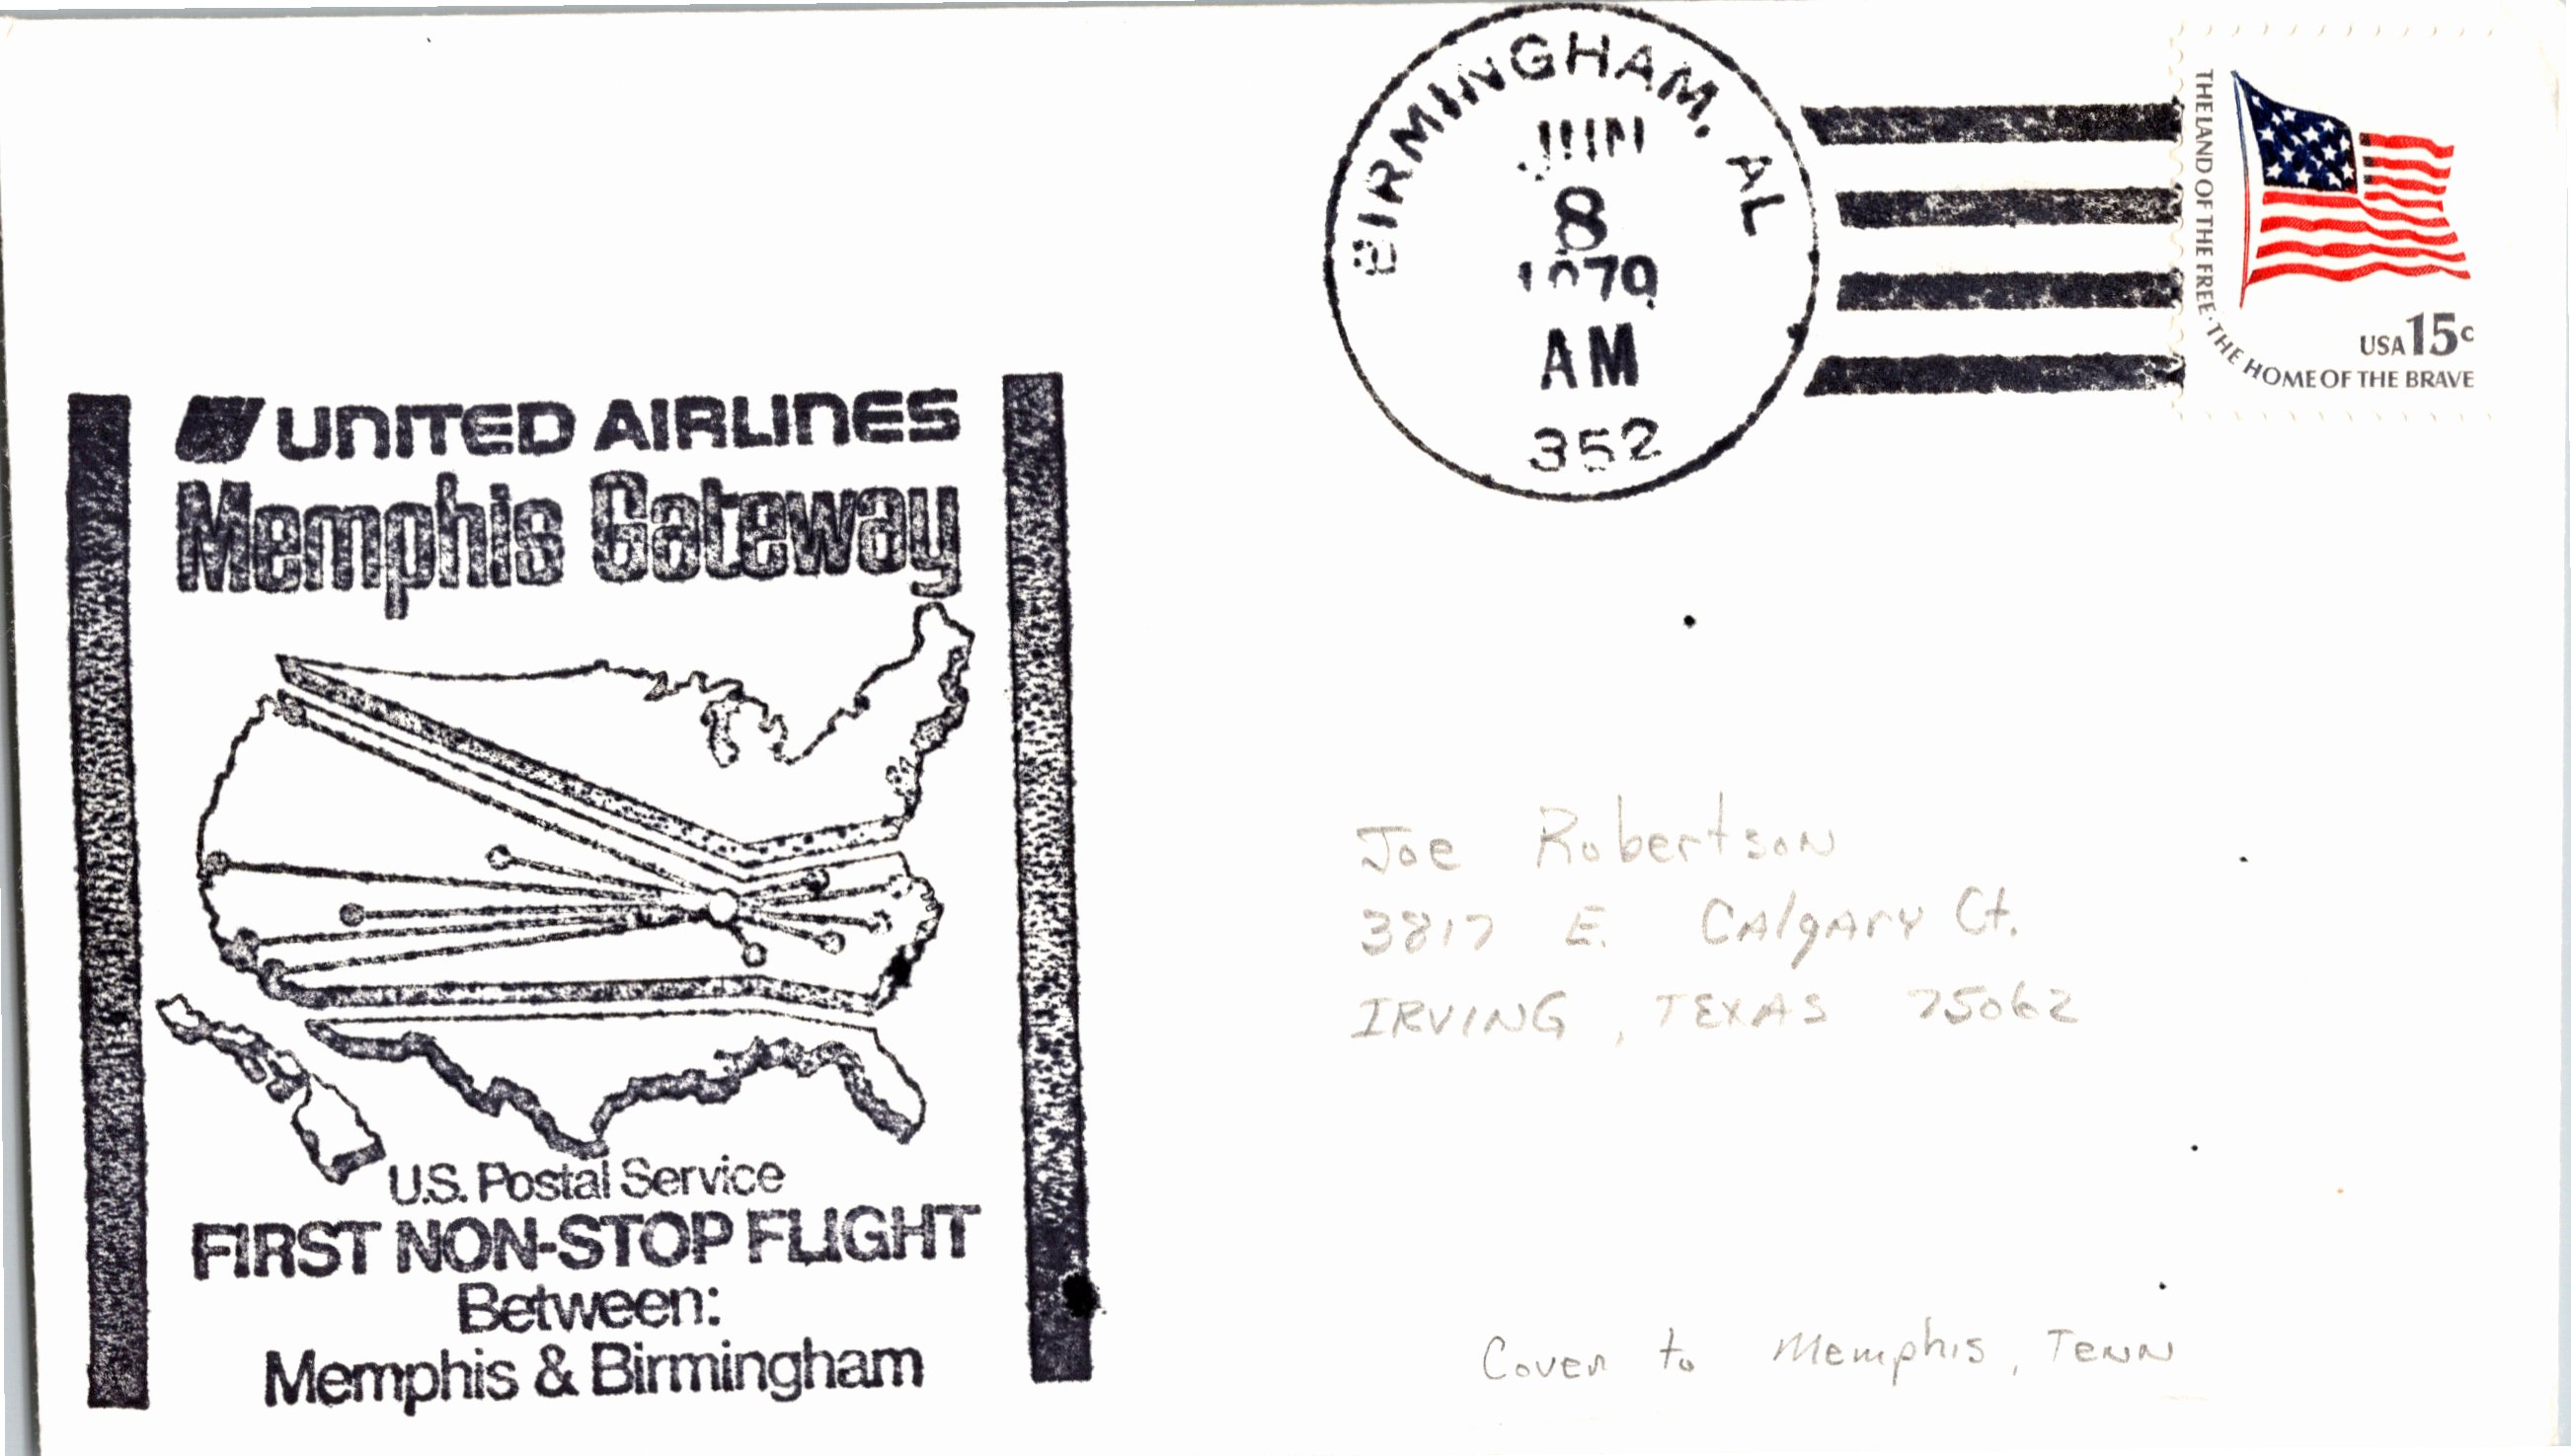 BIRMINGHAM, AL
JUN
8
1979
AM
352
THE LAND OF THE FREE · THE HOME OF THE BRAVE
USA 15c
UNITED AIRLINES
Memphis Gateway
U.S. Postal Service
FIRST NON-STOP FLIGHT
Between:
Memphis & Birmingham
Joe Robertson
3817 E. Calgary Ct.
IRVING, TEXAS 75062
Cover to Memphis, Tenn